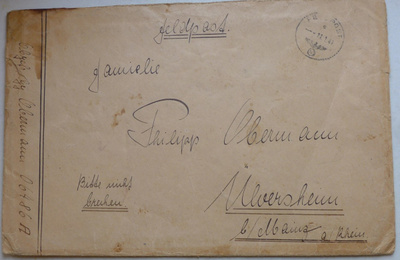 Feldpost.
Familie
Philipp Obermann
Bitte nicht
brechen
Ülversheim
b/Mainz
a. Rhein
Obermann 06486A